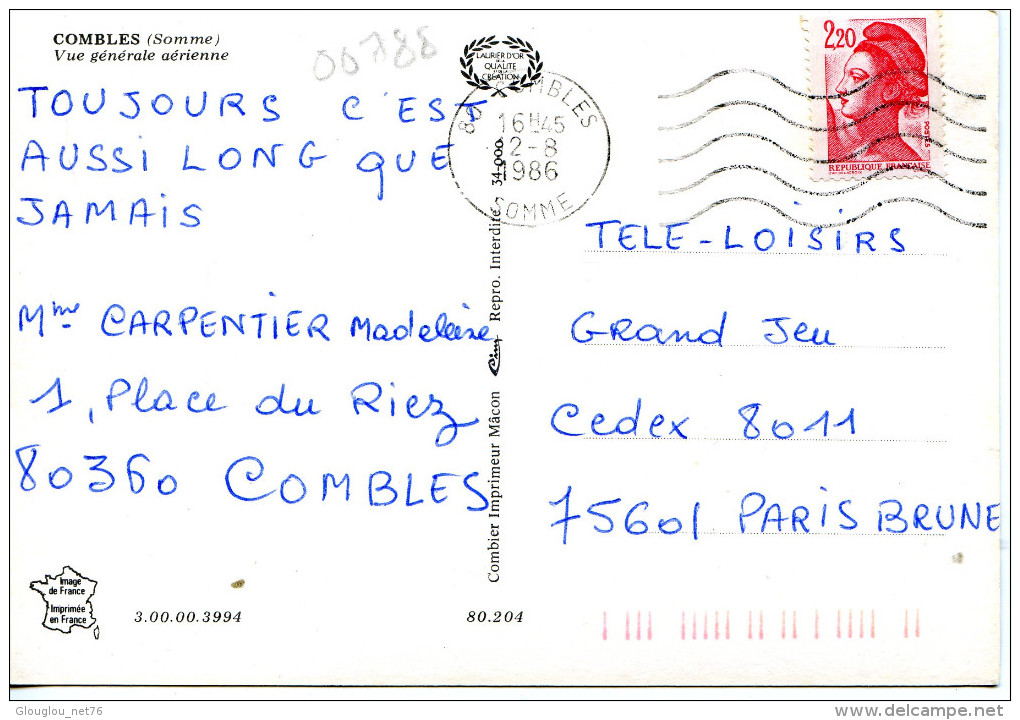 COMBLES (Somme)
Vue générale aérienne
00788
LAURIER D'OR
DE LA
QUALITÉ
ET DE LA
CRÉATION
TOUJOURS C'EST
AUSSI LONG QUE
JAMAIS
Mme CARPENTIER Madeleine
1, Place du Riez
80360 COMBLES
80 COMBLES
16H45
2-8
1986
SOMME
2,20
POSTES
REPUBLIQUE FRANÇAISE
Combier Imprimeur Mâcon Cim Repro. Interdite - 34-000
TELE-LOISIRS
GRAND JEU
Cedex 8011
75601 PARIS BRUNE
Image
de France
Imprimée
en France
3.00.00.3994
80.204
Glouglou_net76